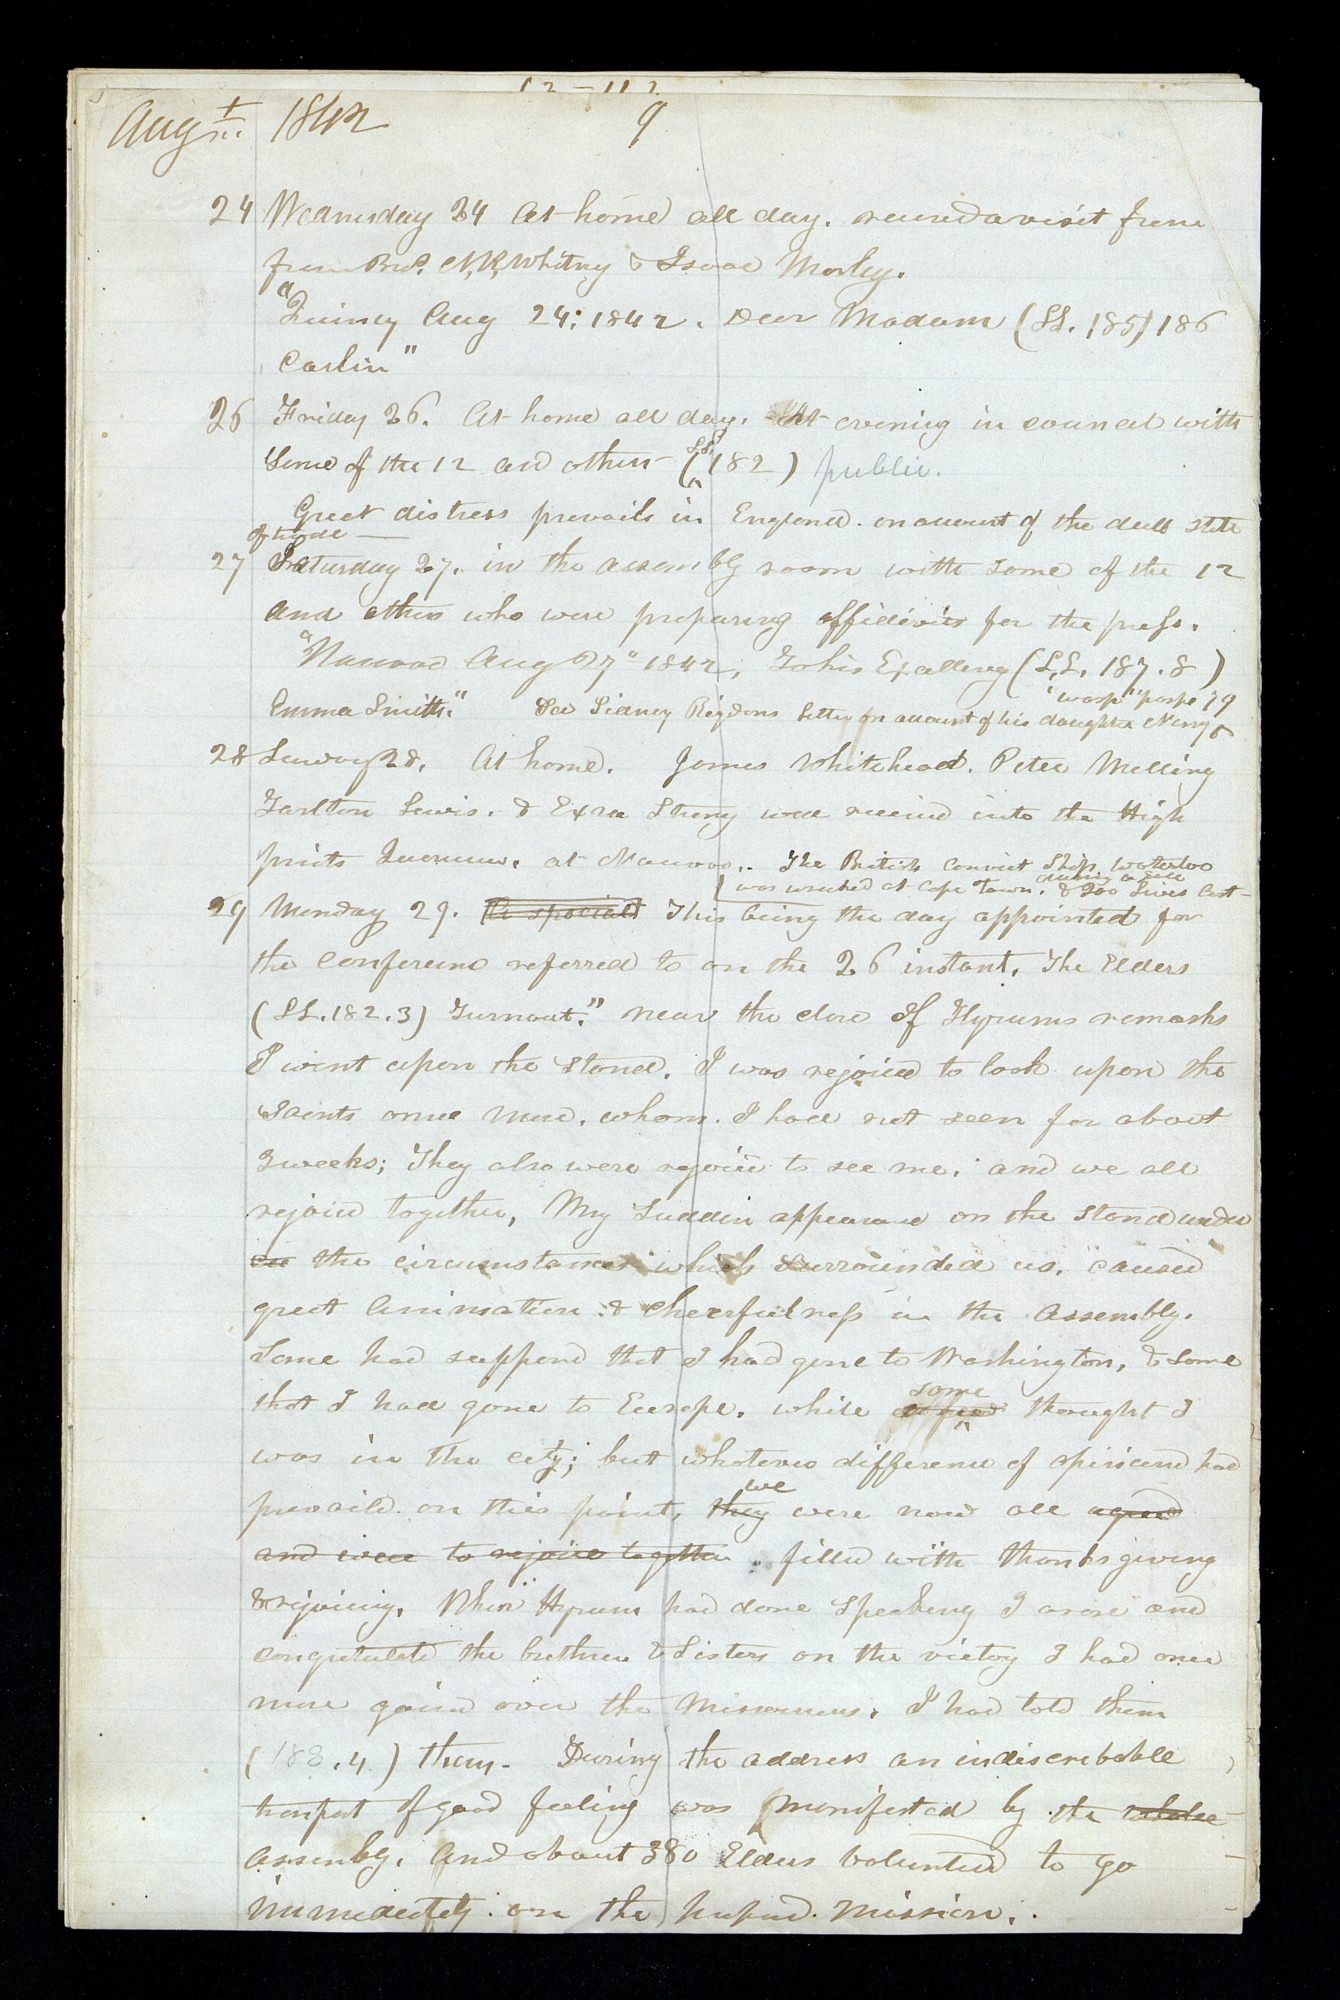 Augst. 1842 9
24 Wednesday 24 At home all day. received a visit from
from Bro's. N, K, Whitney & Isaac Morley.
"Quincy Aug 24: 1842. Dear Madam (LL. 185) 186
Carlin"
26 Friday 26. At home all day. At evening in council with
some of the 12 and others (LL. 182) public.
Great distress prevails in England. on account of the dull state
of trade —
27 Saturday 27. in the assembly room with some of the 12
and others who were preparing affidavits for the press.
"Nauvoo Aug 27" 1842, To his Excellency (L,L. 187.8)
"wasp" page 19
Emma Smith." See Sidney Rigdons letter on account of his daughter Nancy
28 Sunday 28. At home. James Whitehead. Peter Melling
Tarlton Lewis. & Ezra Strong were received into the High
priests Quorum. at Nauvoo.. The British Convict Ship, Waterloo
was wrecked at Cape Town. during a gale & 200 Lives lost—
29 Monday 29. A special This being the day appointed for
the conference referred to on the 26 instant, The Elders
(LL. 182.3) Turnout." near the close of Hyrums remarks
I went upon the stand. I was rejoiced to look upon the
Saints once more, whom I have not seen for about
3 weeks; They also were rejoiced to see me, and we all
rejoiced together, My Sudden appearance on the stand under
on the circumstances which surrounded us, caused
great animation & cheerfulness in the assembly.
Some had supposed that I had gone to Washington, & some
that I had gone to Europe, while some thought I
was in the city; but whatever difference of opinion had
prevailed on this point, they we were now all agreed
and were to rejoice together filled with thanksgiving
& rejoicing. When Hyrum had done speaking I arose and
congratulated the brethren & Sisters on the victory I had once
more gained over the Missourians. I had told them
(183.4) them. During the address an indiscribable
transport of good feeling was manifested by the whole
assembly. And about 380 Elders volunteered to go
immediately on the proposed mission.